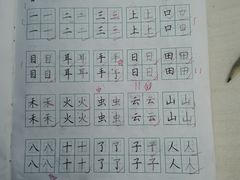 一一 二二 三三 上上 口口
一一 二二 三三 上上 口口
目目 耳耳 手手 日日 田田
目目 耳耳 手手 日日 田田
禾禾 火火 虫虫 云云 山山
禾禾 火火 虫虫 云云 山山
八八 十十 了了 子子 人人
八八 十十 了了 子子 人人